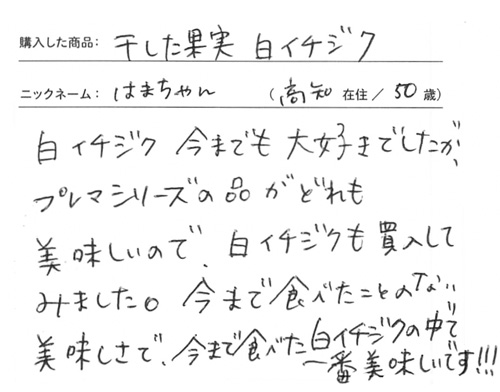 購入した商品: 干した果実 白イチジク
ニックネーム: はまちゃん (高知 在住/50歳)
白イチジク 今までも 大好きでしたが、
プレマシリーズの品がどれも
美味しいので、白イチジクも買入して
みました。今まで食べたことのない
美味しさで、今まで食べた白イチジクの中で
一番美味しいです!!!